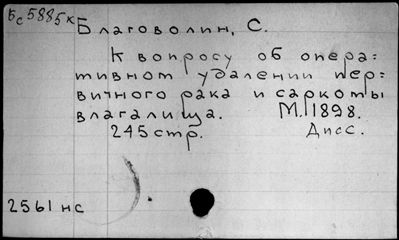 Бс5885к
Благоволин, С.
К вопросу об опера=
тивном удалении пер=
вичного рака и саркомы
влагалища. М. 1898.
245 стр. Дисс.
2561 нс